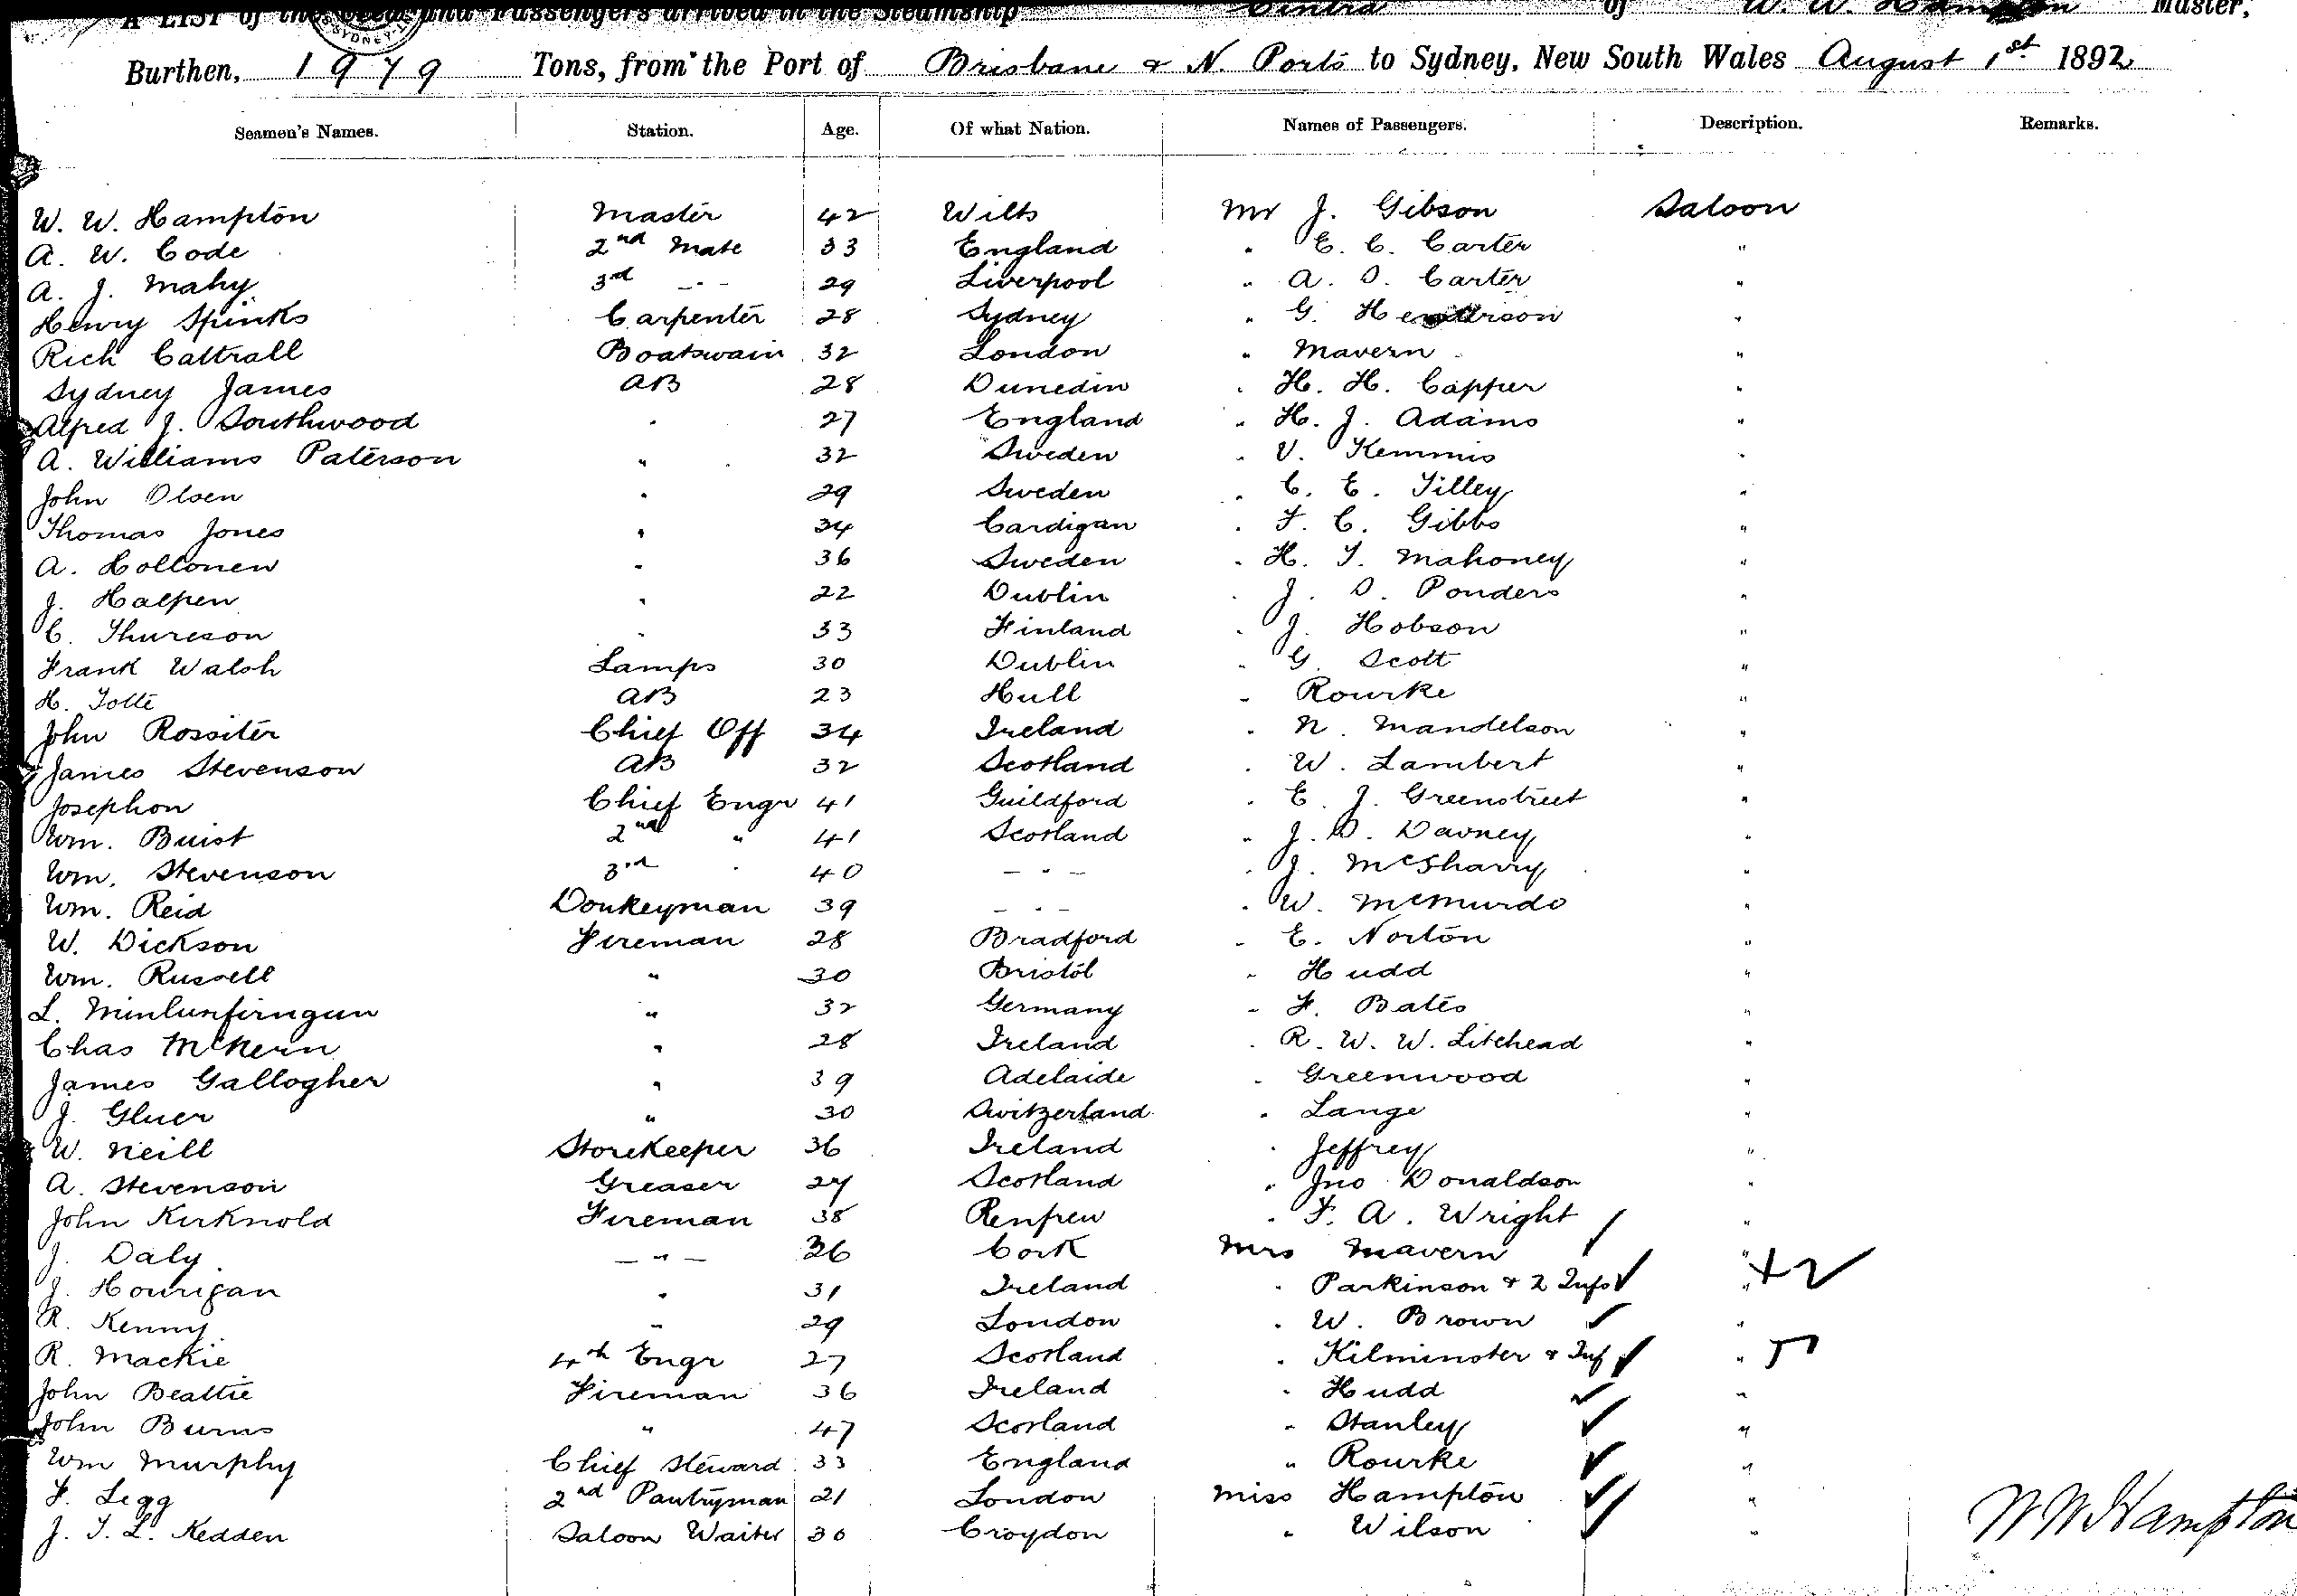 A LIST of the Crew and Passengers arrived in the Steamship Cintra of W. W. Hampton Master,
Burthen, 1979 Tons, from the Port of Brisbane & N. Ports to Sydney, New South Wales August 1st 1892
Seamen's Names. Station. Age. Of what Nation. Names of Passengers. Description. Remarks.
W. W. Hampton Master 42 Wilts Mr J. Gibson Saloon
A. W. Code 2nd Mate 33 England " E. C. Carter "
A. J. Mahy 3rd - " - 29 Liverpool " A. D. Carter "
Henry Spinks Carpenter 28 Sydney " G. "
Rich Cattrall Boatswain 32 London " Mavern "
Sydney James AB 28 Dunedin " H. H. Capper "
Alfred J. Southwood " 27 England " H. J. Adams "
A. Williams Paterson " 32 Sweden " V. Kemmis "
John Olsen " 29 Sweden " C. E. Tilley "
Thomas Jones " 34 Cardigan " F. C. Gibbs "
A. Hollonen " 36 Sweden " H. T. Mahoney "
J. Halpen " 22 Dublin " J. D. Ponders "
C. Thureson " 33 Finland " J. Hobson "
Frank Walsh Lamps 30 Dublin " G. Scott "
H. Totte AB 23 Hull " Rourke "
John Rossiter Chief Off 34 Ireland " N. Mandelson "
James Stevenson AB 32 Scotland " W. Lambert "
Josephon Chief Engr 41 Guildford " E. J. Greenstreet "
Wm. Buist 2nd " 41 Scotland " J. D. Davney "
Wm. Stevenson 3rd " 40 - " - " J. McSharry "
Wm. Reid Donkeyman 39 - " - " W. McMurdo "
W. Dickson Fireman 28 Bradford " E. Norton "
Wm. Russell " 30 Bristol " Hudd "
L. " 32 Germany " F. Bates "
Chas McKern " 28 Ireland " R. W. W. Litehead "
James Gallogher " 39 Adelaide " Greenwood "
J. Gluer " 30 Switzerland " Lange "
W. Neill Storekeeper 36 Ireland " Jeffrey "
A. Stevenson Greaser 27 Scotland " Jno Donaldson "
John Kirknold Fireman 38 Renfrew " F. A. Wright "
J. Daly - " - 36 Cork Mrs Mavern "
J. Hourigan " 31 Ireland " Parkinson & 2 Infs " +2
R. Kenny " 29 London " W. Brown "
R. Mackie 4th Engr 27 Scotland " Kilminster & Inf "
John Beattie Fireman 36 Ireland " Hudd "
John Burns " 47 Scotland " Stanley "
Wm Murphy Chief Steward 33 England " Rourke "
F. Legg 2nd Pantryman 21 London Miss Hampton "
J. T. L. Kedden Saloon Waiter 30 Croydon " Wilson "
W W Hampton